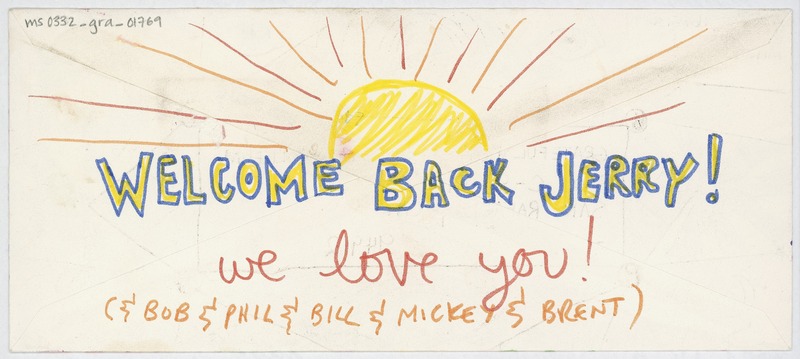 ms0332_gra_01769
WELCOME BACK JERRY!
we love you!
(& BOB & PHIL & BILL & MICKEY & BRENT)